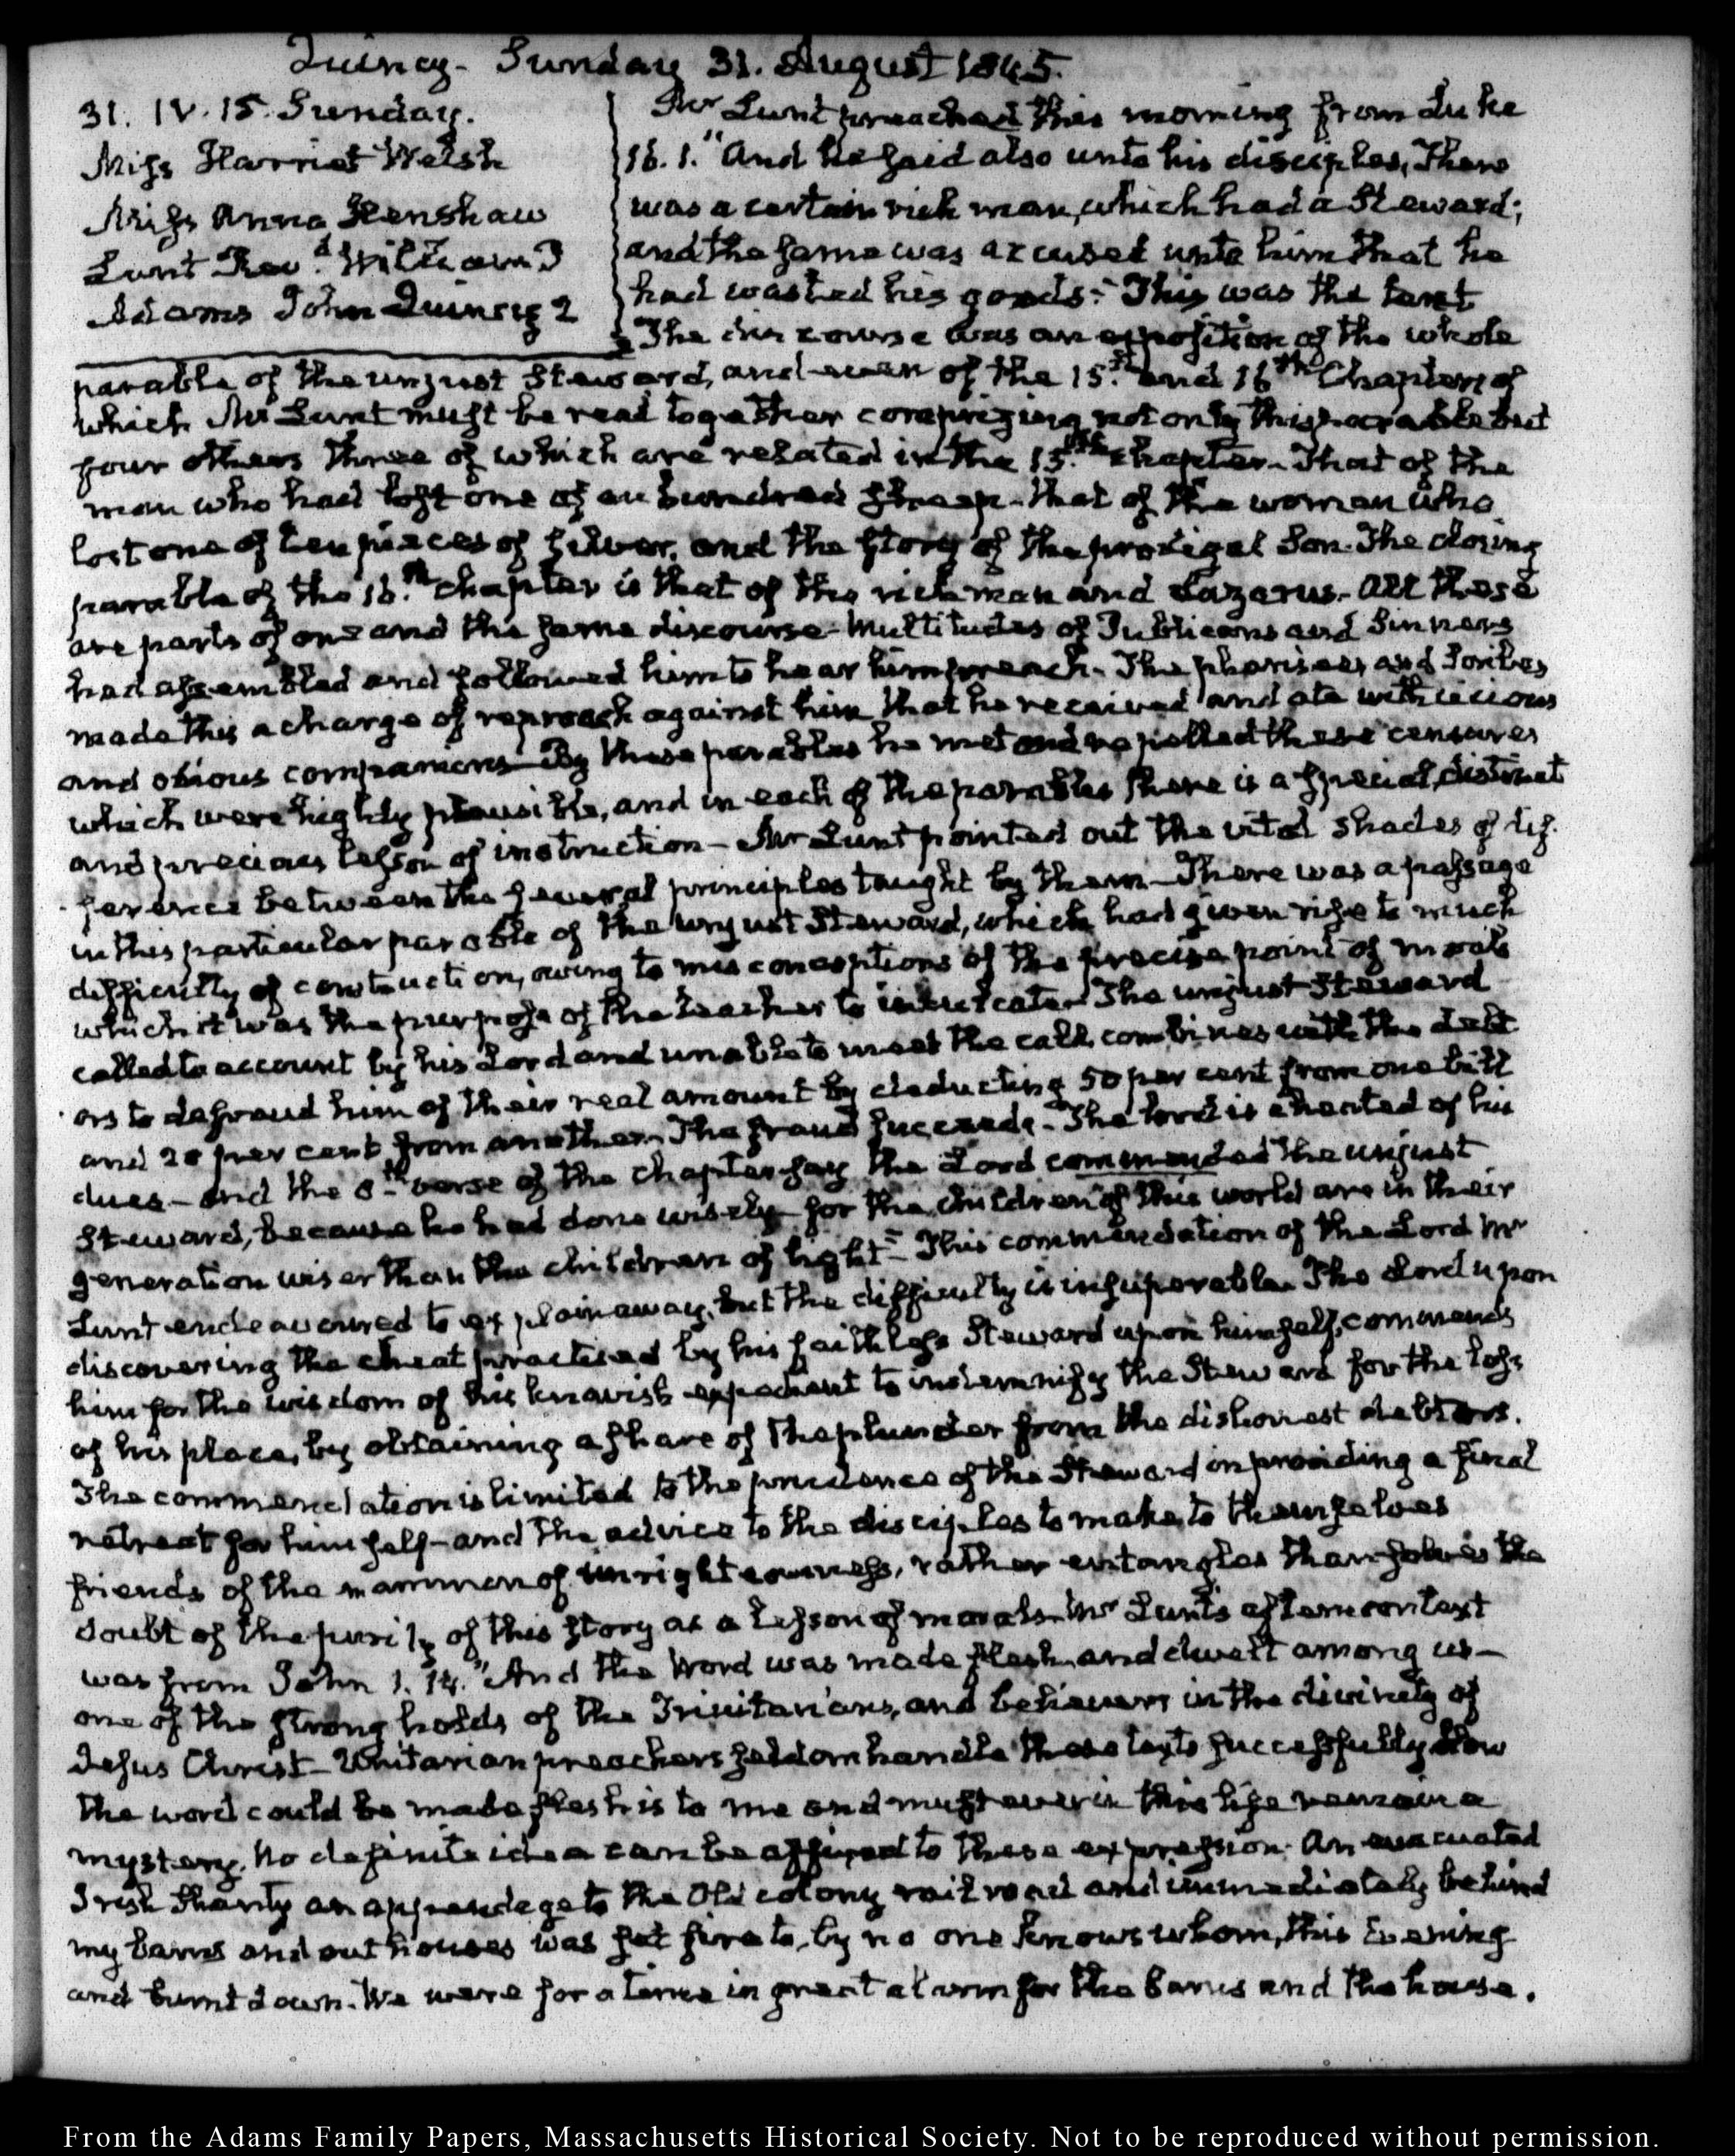 Quincy - Sunday 31. August 1845.
31. IV. 15. Sunday.
Miss Harriet Welsh
Miss Anna Henshaw
Lunt Rev.d William P
Adams John Quincy 2
Mr Lunt preached this morning from Luke
16. 1. "And he said also unto his disciples, There
was a certain rich man, which had a Steward;
and the same was accused unto him that he
had wasted his goods." This was the text
The discourse was an exposition of the whole
parable of the unjust Steward, and even of the 15.th and 16th Chapters of
which Mr Lunt must be read together comprizing not only this parable but
four others three of which are related in the 15.th chapter. That of the
man who had lost one of an hundred sheep. that of the woman who
lost one of ten pieces of silver, and the story of the prodigal Son. The closing
parable of the 16.th chapter is that of the rich man and Lazarus. All these
are parts of one and the same discourse. Multitudes of Publicans and Sinners
had assembled and followed him to hear him preach. The pharisees and Scribes
made this a charge of reproach against him that he received and ate with vicious
and odious companions. By these parables he met and repelled these censures
which were highly plausible, and in each of the parables there is a special, distinct
and precious lesson of instruction - Mr Lunt pointed out the vital shades of dif-
ference between the general principles taught by them - There was a passage
in this particular parable of the unjust Steward, which had given rise to much
difficulty of construction, owing to misconceptions of the precise point of morals
which it was the purpose of the teacher to inculcate. The unjust Steward
called to account by his Lord and unable to meet the call, combines with the debt
ors to defraud him of their real amount by deducting 50 per cent from one bill
and 20 per cent from another. The fraud succeeds. The lord is cheated of his
dues - and the 8th verse of the chapter says the Lord commended the unjust
Steward, because he had done wisely for the children of this world are in their
generation wiser than the children of light." This commendation of the Lord Mr
Lunt endeavoured to explain away, but the difficulty is insuperable. The Lord upon
discovering the cheat practised by his faithless Steward upon himself, commends
him for the wisdom of his knavish expedient to indemnify the Steward for the loss
of his place, by obtaining a share of the plunder from the dishonest debtors.
The commendation is limited to the prudence of the Steward in providing a final
retreat for himself - and the advice to the disciples to make to themselves
friends of the mammon of unrighteousness, rather entangles than solves the
doubt of the purity of this story as a lesson of morals. Mr Lunt's afternoon text
was from John 1. 14. "And the Word was made flesh and dwelt among us -
one of the strong holds of the Trinitarians, and believers in the divinity of
Jesus Christ - Unitarian preachers seldom handle these texts successfully. How
the word could be made flesh is to me and must ever in this life remain a
mystery. No definite idea can be affixed to these expression. An evacuated
Irish Shanty an appendage to the Old colony rail road and immediately behind
my barns and outhouses was set fire to, by no one knows whom, this Evening
and burnt down. We were for a time in great alarm for the barns and the house.
From the Adams Family Papers, Massachusetts Historical Society. Not to be reproduced without permission.